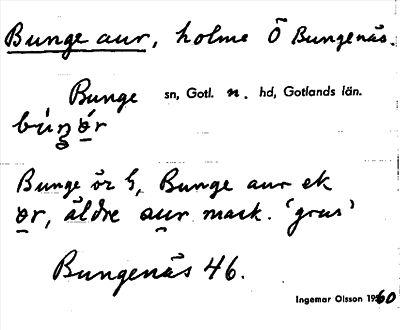 Bunge aur, holme Ö Bungenäs.
Bunge sn, Gotl. n. hd, Gotlands län.
Bunge ör G, Bunge aur ek
ør, äldre aur mask. 'grus'
Bungenäs 46.
Ingemar Olsson 1960